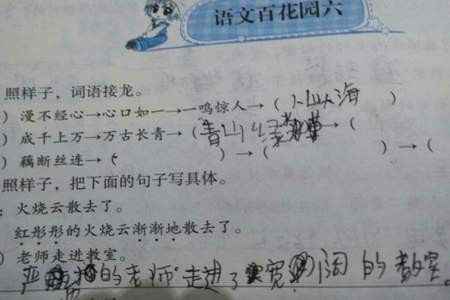 语文百花园六
照样子，词语接龙。
）漫不经心→心口如一→一鸣惊人→（人山人海）
）成千上万→万古长青→（青山绿）→（
）藕断丝连→（ ）→（ ）→（
照样子，把下面的句子写具体。
：火烧云散去了。
红彤彤的火烧云渐渐地散去了。
）老师走进教室。
严的老师走进了宽阔的教室